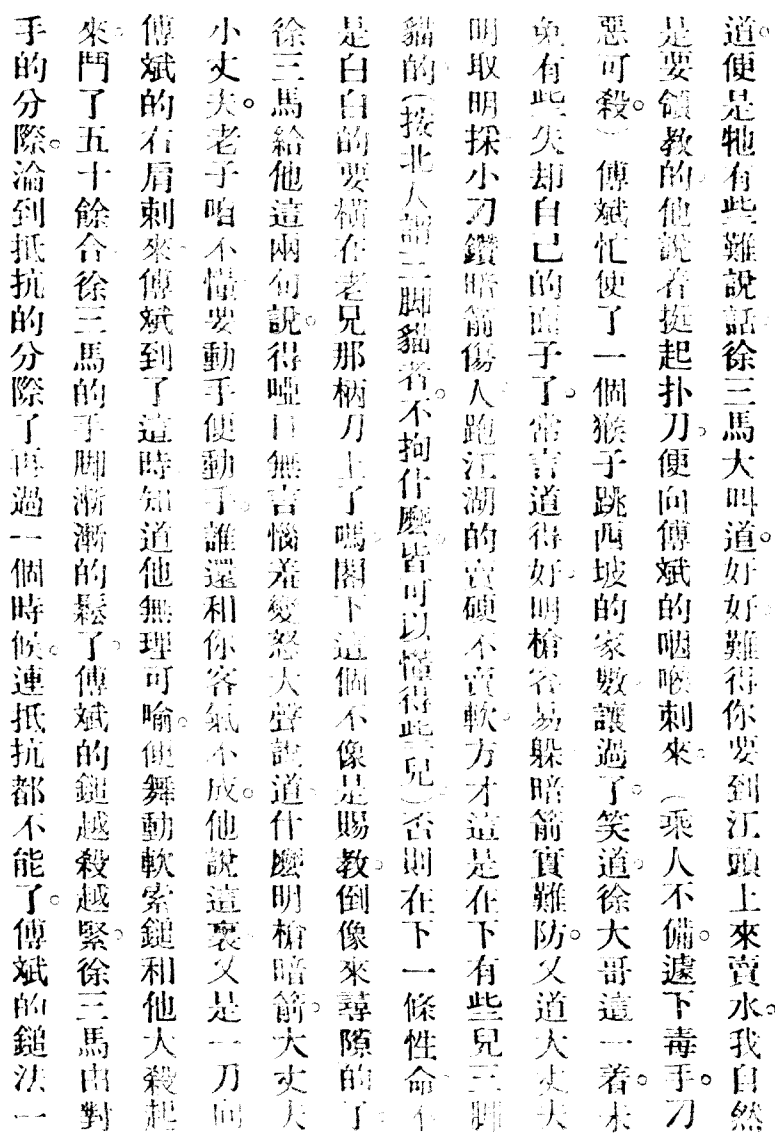 道。便是牠有些難說話徐三馬大叫道。好好難得你要到江頭上來賣水。我自然
是要領教的。他說着挺起扑刀。便向傅斌的咽喉刺來。(乘人不備。遽下毒手。刀
惡可殺。)傅斌忙使了一個猴子跳西坡的家數讓過了。笑道。徐大哥這一着。未
免有些失却自己的面子了。常言道得好。明槍容易躲暗箭實難防。又道大丈夫
明取明採小刀鑽暗箭傷人。跑江湖的賣硬不賣軟。方才這是在下有些兒三脚
貓的。(按北人謂三脚貓者。不拘什麼皆可以懂得些兒)否則在下一條性命不
是白白的要橫在老兄那柄刀上了嗎。閣下這個不像是賜教。倒像來尋隙的了
徐三馬給他這兩句說。得啞口無言惱羞變怒大聲說道。什麼明槍暗箭。大丈夫
小丈夫。老子咱不懂。要動手便動手。誰還和你客氣不成。他說這裏又是一刀向
傅斌的右肩刺來。傅斌到了這時知道他無理可喻。便舞動軟索鎚和他大殺起
來。鬥了五十餘合。徐三馬的手脚漸漸的鬆了。傅斌的鎚越殺越緊。徐三馬由對
手的分際。淪到抵抗的分際了。再過一個時候。連抵抗都不能了。傅斌的鎚法一